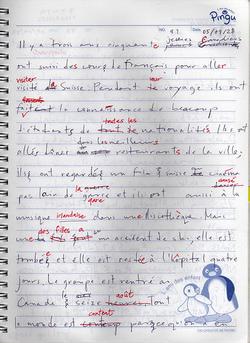 Pingu
NO. 9.1 Date 05/09/28
jeunes Canadiens
Il y a trois ans cinquante
ont suivi des cours de français pour aller
visiter la leur
visité Suisse. Pendant voyage ils ont
fait la connaissance de beaucoup
toutes les
d'étudiants de nationalités Ils ont
dans les meilleurs
allés dîner restaurants de la ville,
ils ont regardés un film Suisse cinéma
la guerre dansé
pas loin de gare et ils ont aussi à la
gare
musique irlandaise dans une discothèque. Mais
des filles a
une eu un accident de ski, elle est
tombée et elle est restée à l'hôpital quatre
jours. Le groupe est rentré au
le août
Canada seize
content
le monde est parce qu'on a en